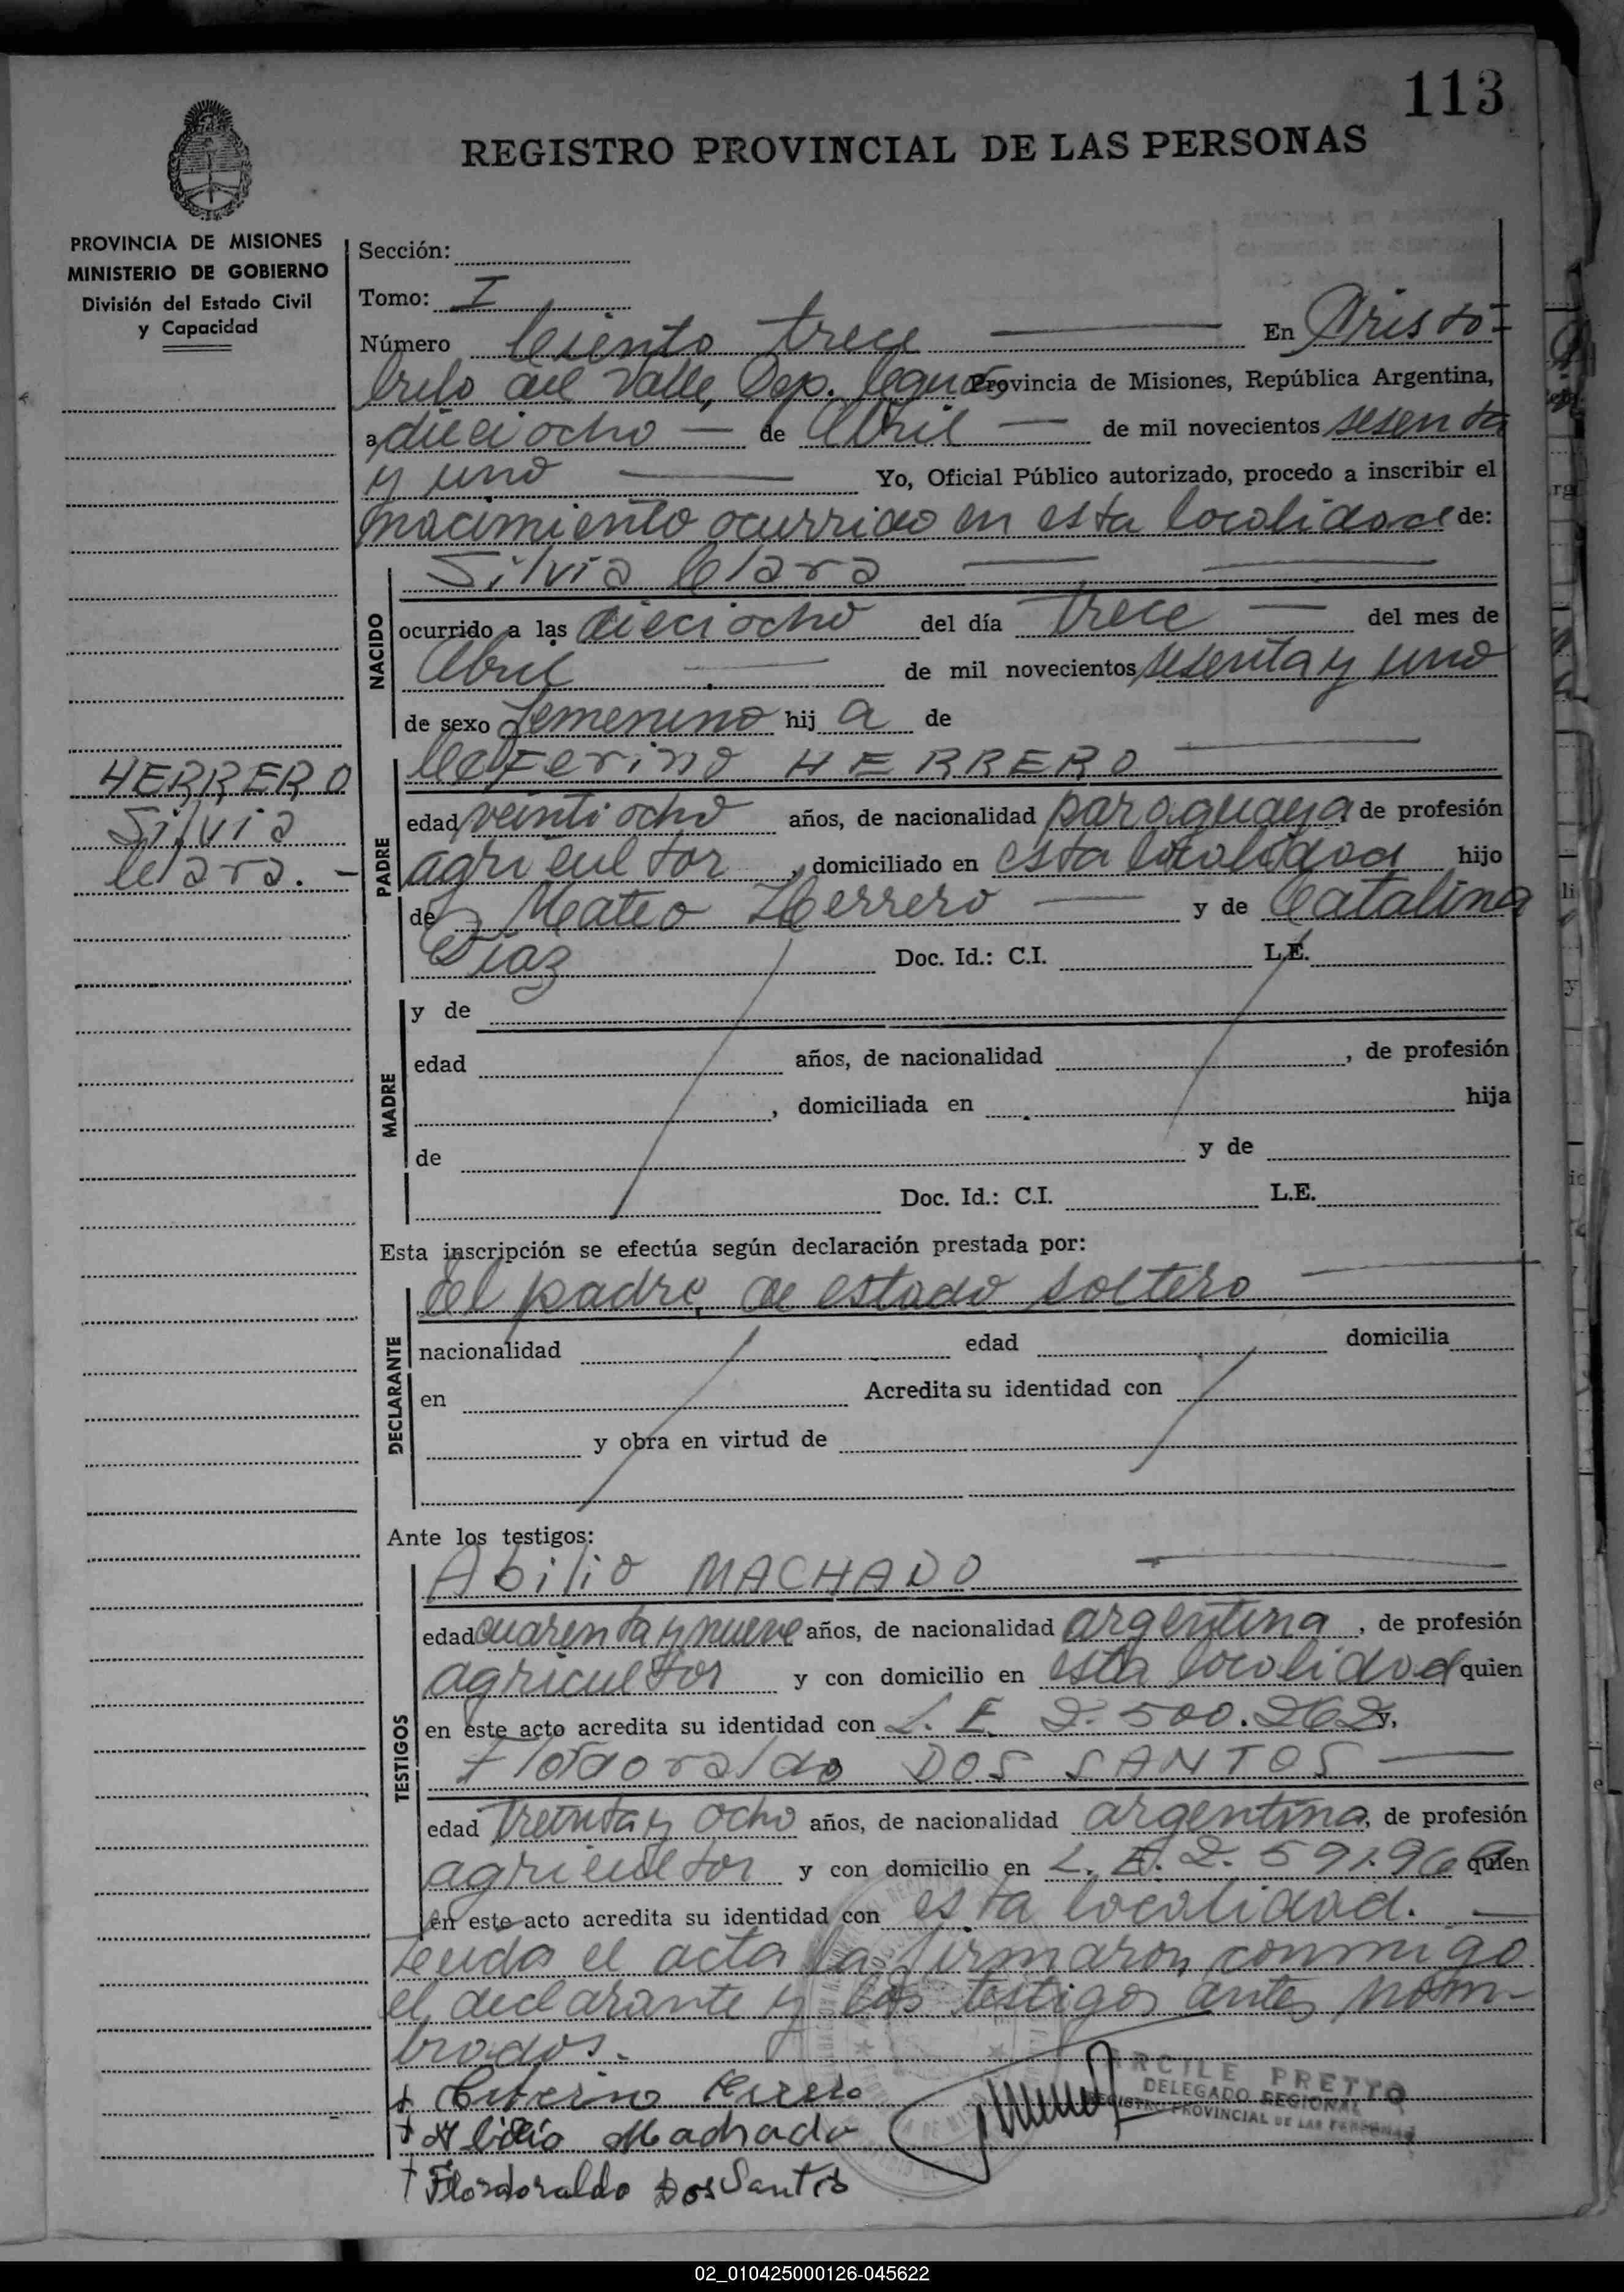 113
REGISTRO PROVINCIAL DE LAS PERSONAS
PROVINCIA DE MISIONES
MINISTERIO DE GOBIERNO
División del Estado Civil
y Capacidad
Sección:
Tomo: I
Número Ciento trece En Aristó-
bulo del Valle, Dep. Cgúas, Provincia de Misiones, República Argentina,
a dieciocho de Abril de mil novecientos sesenta
y uno Yo, Oficial Público autorizado, procedo a inscribir el
nacimiento ocurrido en esta localidad de:
Silvia Clara
NACIDO
ocurrido a las dieciocho del día trece del mes de
Abril de mil novecientos sesenta y uno
de sexo femenino hij a de
HERRERO
Silvia
Clara.-
Ceferino HERRERO
PADRE
edad veintiocho años, de nacionalidad paraguaya de profesión
agricultor, domiciliado en esta localidad hijo
de Mateo Herrero y de Catalina
Díaz Doc. Id.: C.I. L.E.
MADRE
y de
edad años, de nacionalidad , de profesión
, domiciliada en hija
de y de
Doc. Id.: C.I. L.E.
Esta inscripción se efectúa según declaración prestada por:
DECLARANTE
el padre, de estado soltero
nacionalidad edad domicilia
en Acredita su identidad con
y obra en virtud de
Ante los testigos:
TESTIGOS
Abilio MACHADO
edad cuarenta y nueve años, de nacionalidad argentina, de profesión
agricultor y con domicilio en esta localidad quien
en este acto acredita su identidad con L. E. 2.500.262 y,
Flordoraldo DOS SANTOS
edad treinta y ocho años, de nacionalidad argentina, de profesión
agricultor y con domicilio en L. E. 2.591.96 quien
en este acto acredita su identidad con esta localidad.
Leída el acta la firmaron conmigo
el declarante y los testigos antes nom-
brados.-
Ceferino
Abilio Machado
Flordoraldo Dos Santos
ARCILE PRETTO
DELEGADO REGIONAL
REGISTRO PROVINCIAL DE LAS PERSONAS
02_010425000126-045622